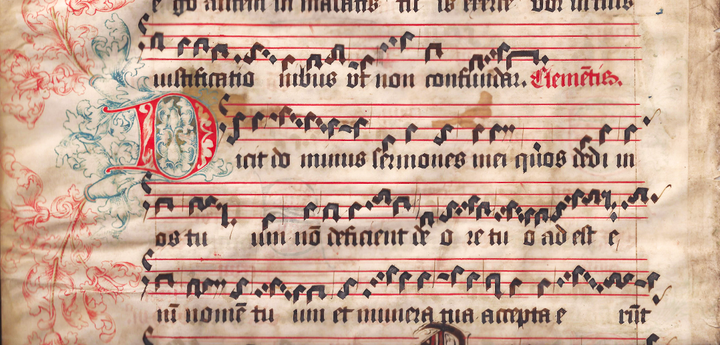 e go autem in mandatis tu is exerce bor in tuis
iustificatio nibus vt non confundar. Clemētis.
Dicit do minus sermones mei quos dedi in
os tu um nō deficient de o re tu o ad est e
nī nomē tu um et munera tua accepta e rūt